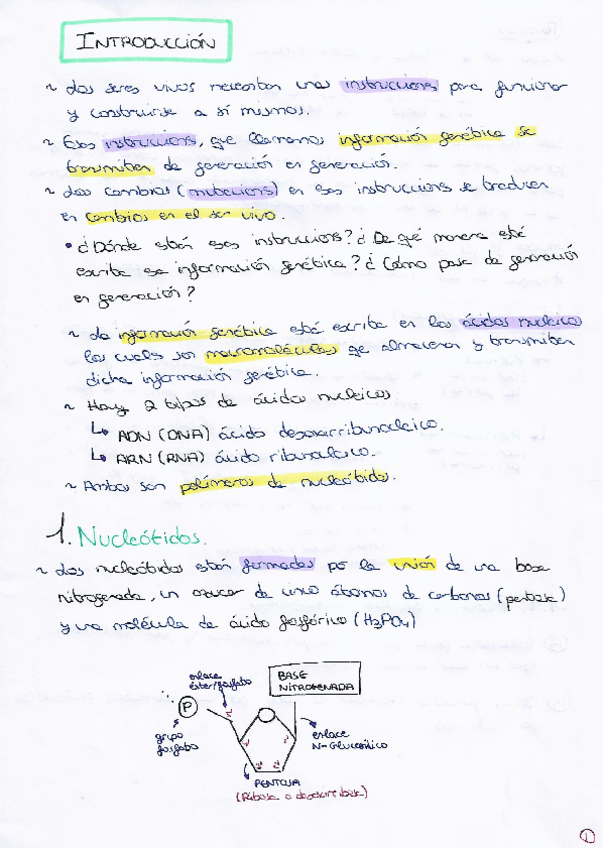 INTRODUCCIÓN
~ Los seres vivos necesitan unas instrucciones para funcionar
y construirse a sí mismos.
~ Esas instrucciones, que llamamos información genética se
transmiten de generación en generación.
~ Los cambios (mutaciones) en esas instrucciones se traducen
en cambios en el ser vivo.
• ¿Dónde están esas instrucciones? ¿De qué manera está
escrita esa información genética? ¿Cómo pasa de generación
en generación?
~ La información genética está escrita en los ácidos nucleicos
los cuales son macromoléculas que almacenan y transmiten
dicha información genética.
~ Hay 2 tipos de ácidos nucleicos.
↳ ADN (DNA) ácido desoxirribonucleico.
↳ ARN (RNA) ácido ribonucleico.
~ Ambos son polímeros de nucleótidos.
1. Nucleótidos.
~ Los nucleótidos están formados por la unión de una base
nitrogenada, un azúcar de cinco átomos de carbonos (pentosa)
y una molécula de ácido fosfórico (H3PO4)
enlace
éster/fosfato
BASE
NITROGENADA
P
grupo
fosfato
enlace
N-Glucosídico
PENTOSA
(Ribosa o desoxirribosa)
1